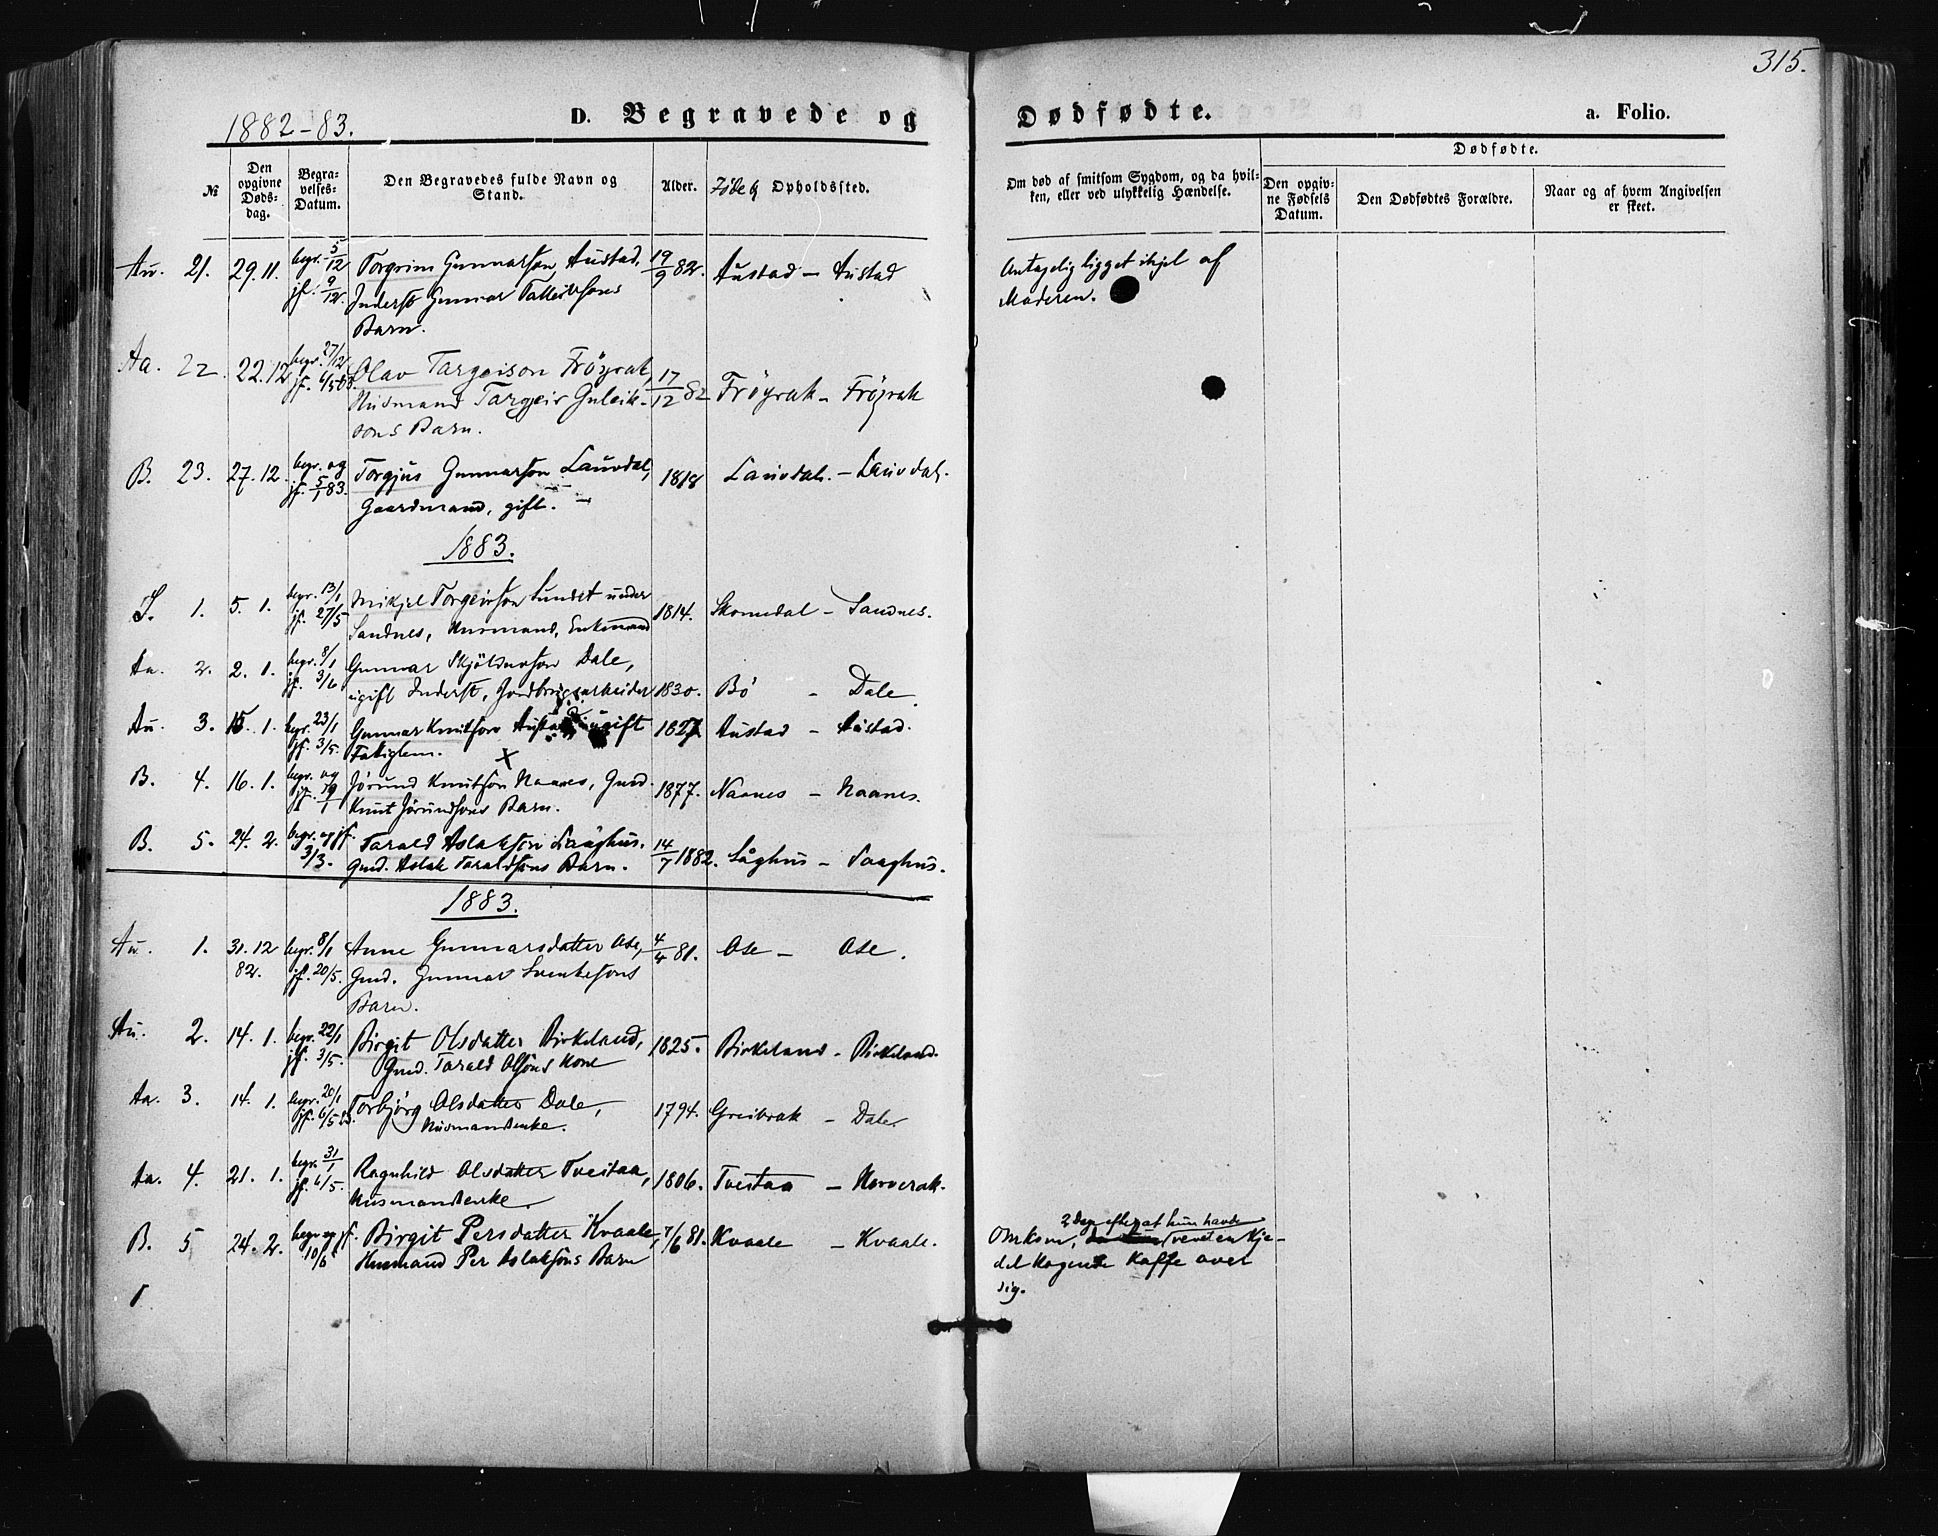 315.
1882-83.
D. Begravede og Dødfødte.
a. Folio.
№
Den opgivne Døds-dag.
Begra-velses-Datum.
Den Begravedes fulde Navn og Stand.
Alder.
Føde og Opholdssted.
Om død af smitsom Sygdom, og da hvil-ken, eller ved ulykkelig Hændelse.
Dødfødte.
Den opgiv-ne Fødsels Datum.
Den Dødfødtes Forældre.
Naar og af hvem Angivelsen er skeet.
Au. 21. 29. 11. begr. 5/12 Torgrim Gunnarson Austad, 19/9 82. Austad - Austad Antagelig ligget ihjel af
jf. 9/12. Inderst Gunnar Talleivsons Moderen.
Barn.
Aa. 22. 22. 12 begr. 27/12 Olav Targeison Frøyrak, 17/12 82 Frøyrak - Frøyrak
jf. 6/5 83. Husmand Targeir Guleik-
sons Barn.
B. 23. 27. 12. begr. og Torgjus Gunnarson Lauvdal, 1818 Lauvdal. - Lauvdal.
jf. 5/1 83. Gaardmand, gift.
1883.
S. 1. 5. 1. begr. 13/1 Mikjel Torgeirson Sundet under 1814. Skomedal - Sandnes.
jf. 27/5 Sandnes, Husmand, Enkemand
Aa. 2. 2. 1. begr. 8/1 Gunnar Skjöldulson Dale,
jf. 3/6 ugift Inderst, Jordbrugsarbeider 1830. Bö - Dale.
Au. 3. 15. 1. begr. 23/1 Gunnar Knutson Austad ugift 1827 Austad - Austad.
jf. 3/5. Fattiglem. X
B. 4. 16. 1. begr. og Jørund Knutson Naanes, Gmd. 1877. Naanes - Naanes.
jf. 19/1 Knut Jørundsons Barn.
B. 5. 24. 2. begr. og jf. Tarald Aslakson Laaghus. 14/7 1882. Låghus - Laaghus.
3/3. Gmd. Aslak Taraldsons Barn.
1883.
Au. 1. 31. 12 begr. 8/1 Anne Gunnarsdatter Ose, 4/4 81. Ose - Ose.
82. jf. 20/5. Gmd. Gunnar Svenkesons
Barn.
Au. 2. 14. 1. begr. 22/1 Birgit Olsdatter Birkeland, 1825. Birkeland - Birkeland.
jf. 3/5. Gmd. Tarald Olsons Kone
Aa. 3. 14. 1. begr. 20/1 Torbjörg Olsdatter Dale, 1794. Greibrak - Dale.
jf. 6/5 Husmandsenke.
Aa. 4. 21. 1. begr. 31/1 Ragnhild Olsdatter Tveitaa, 1806. Tveitaa - Horverak.
jf. 6/5. Husmandsenke.
2 Dage efter at hun havde
B. 5 24. 2. begr. og jf. Birgit Persdatter Kvaale, 7/6 81. Kvaale - Kvaale. Omkom, revet en Kje-
10/6 Husmand Per Aslaksons Barn del kogende Kaffe over
sig.